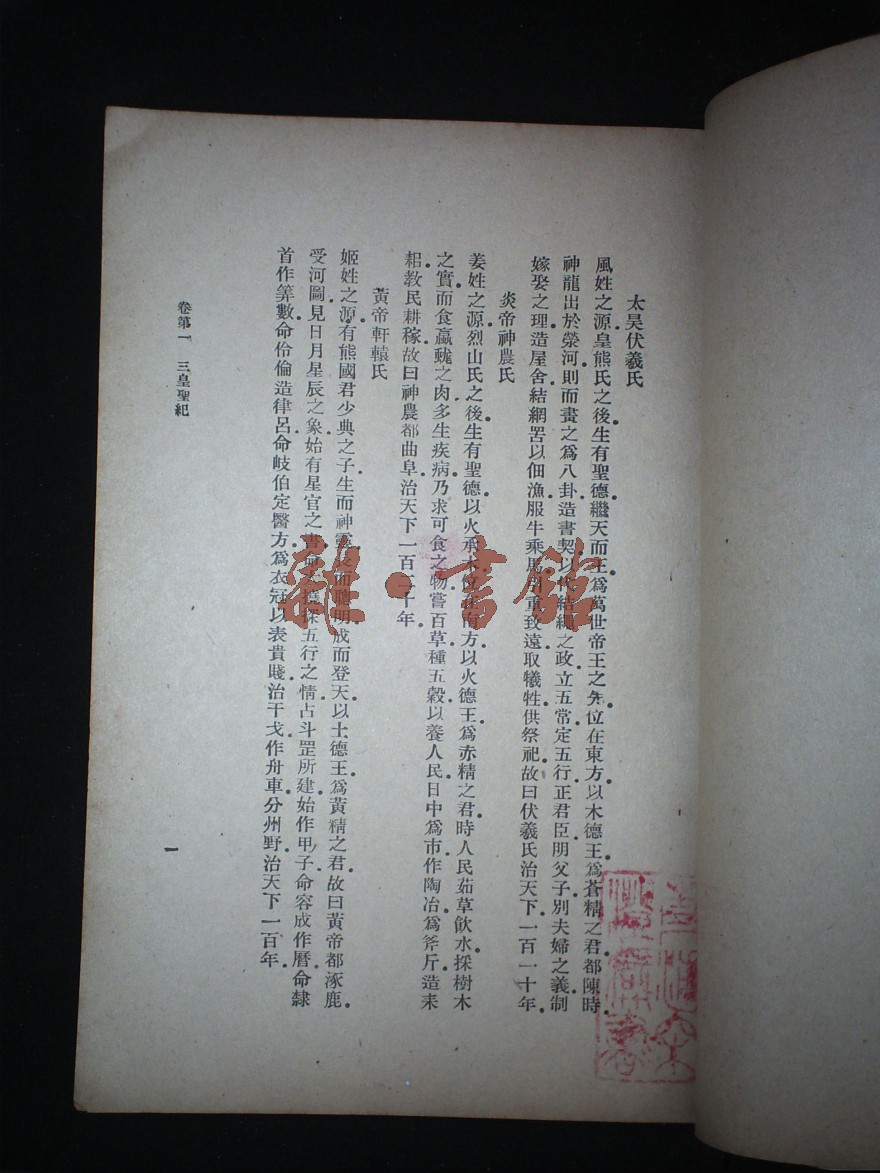 太昊伏羲氏
風姓之源皇熊氏之後生有聖德繼天而王爲萬世帝王之先位在東方以木德王爲蒼精之君都陳時
神龍出於滎河則而畫之爲八卦造書契以代結繩之政立五常定五行正君臣明父子別夫婦之義制
嫁娶之理造屋舍結網罟以佃漁服牛乘馬引重致遠取犧牲供祭祀故曰伏羲氏治天下一百一十年
炎帝神農氏
姜姓之源烈山氏之後生有聖德以火承木位在南方以火德王爲赤精之君時人民茹草飲水採樹木
之實而食蠃蛖之肉多生疾病乃求可食之物嘗百草種五穀以養人民日中爲市作陶冶爲斧斤造耒
耜教民耕稼故曰神農都曲阜治天下一百二十年
黃帝軒轅氏
姬姓之源有熊國君少典之子生而神靈長而聰明成而登天以土德王爲黃精之君故曰黃帝都涿鹿
受河圖見日月星辰之象始有星官之書命大撓探五行之情占斗罡所建始作甲子命容成作曆命隸
首作筭數命伶倫造律呂命岐伯定醫方爲衣冠以表貴賤治干戈作舟車分州野治天下一百年
卷第一 三皇聖紀
一
雜·書館